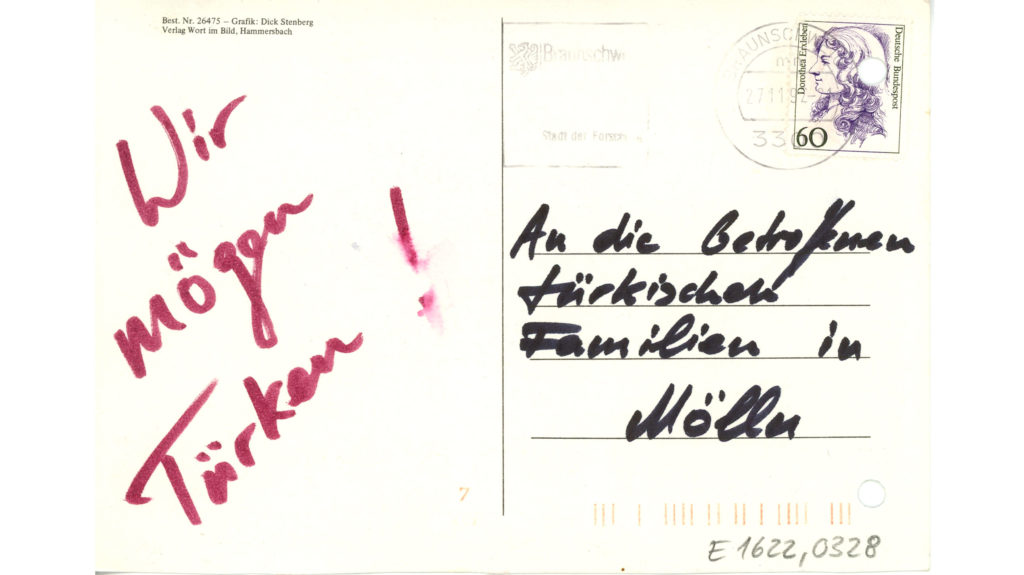 Best. Nr. 26475 – Grafik: Dick Stenberg
Verlag Wort im Bild, Hammersbach
Wir
mögen
Türken !
Braunschw
Stadt der Forsch
BRAUNSCHW
27.11.92
330
Dorothea Erxleben
Deutsche Bundespost
60
An die Betroffenen
türkischen
Familien in
Mölln
7
E 1622,0328